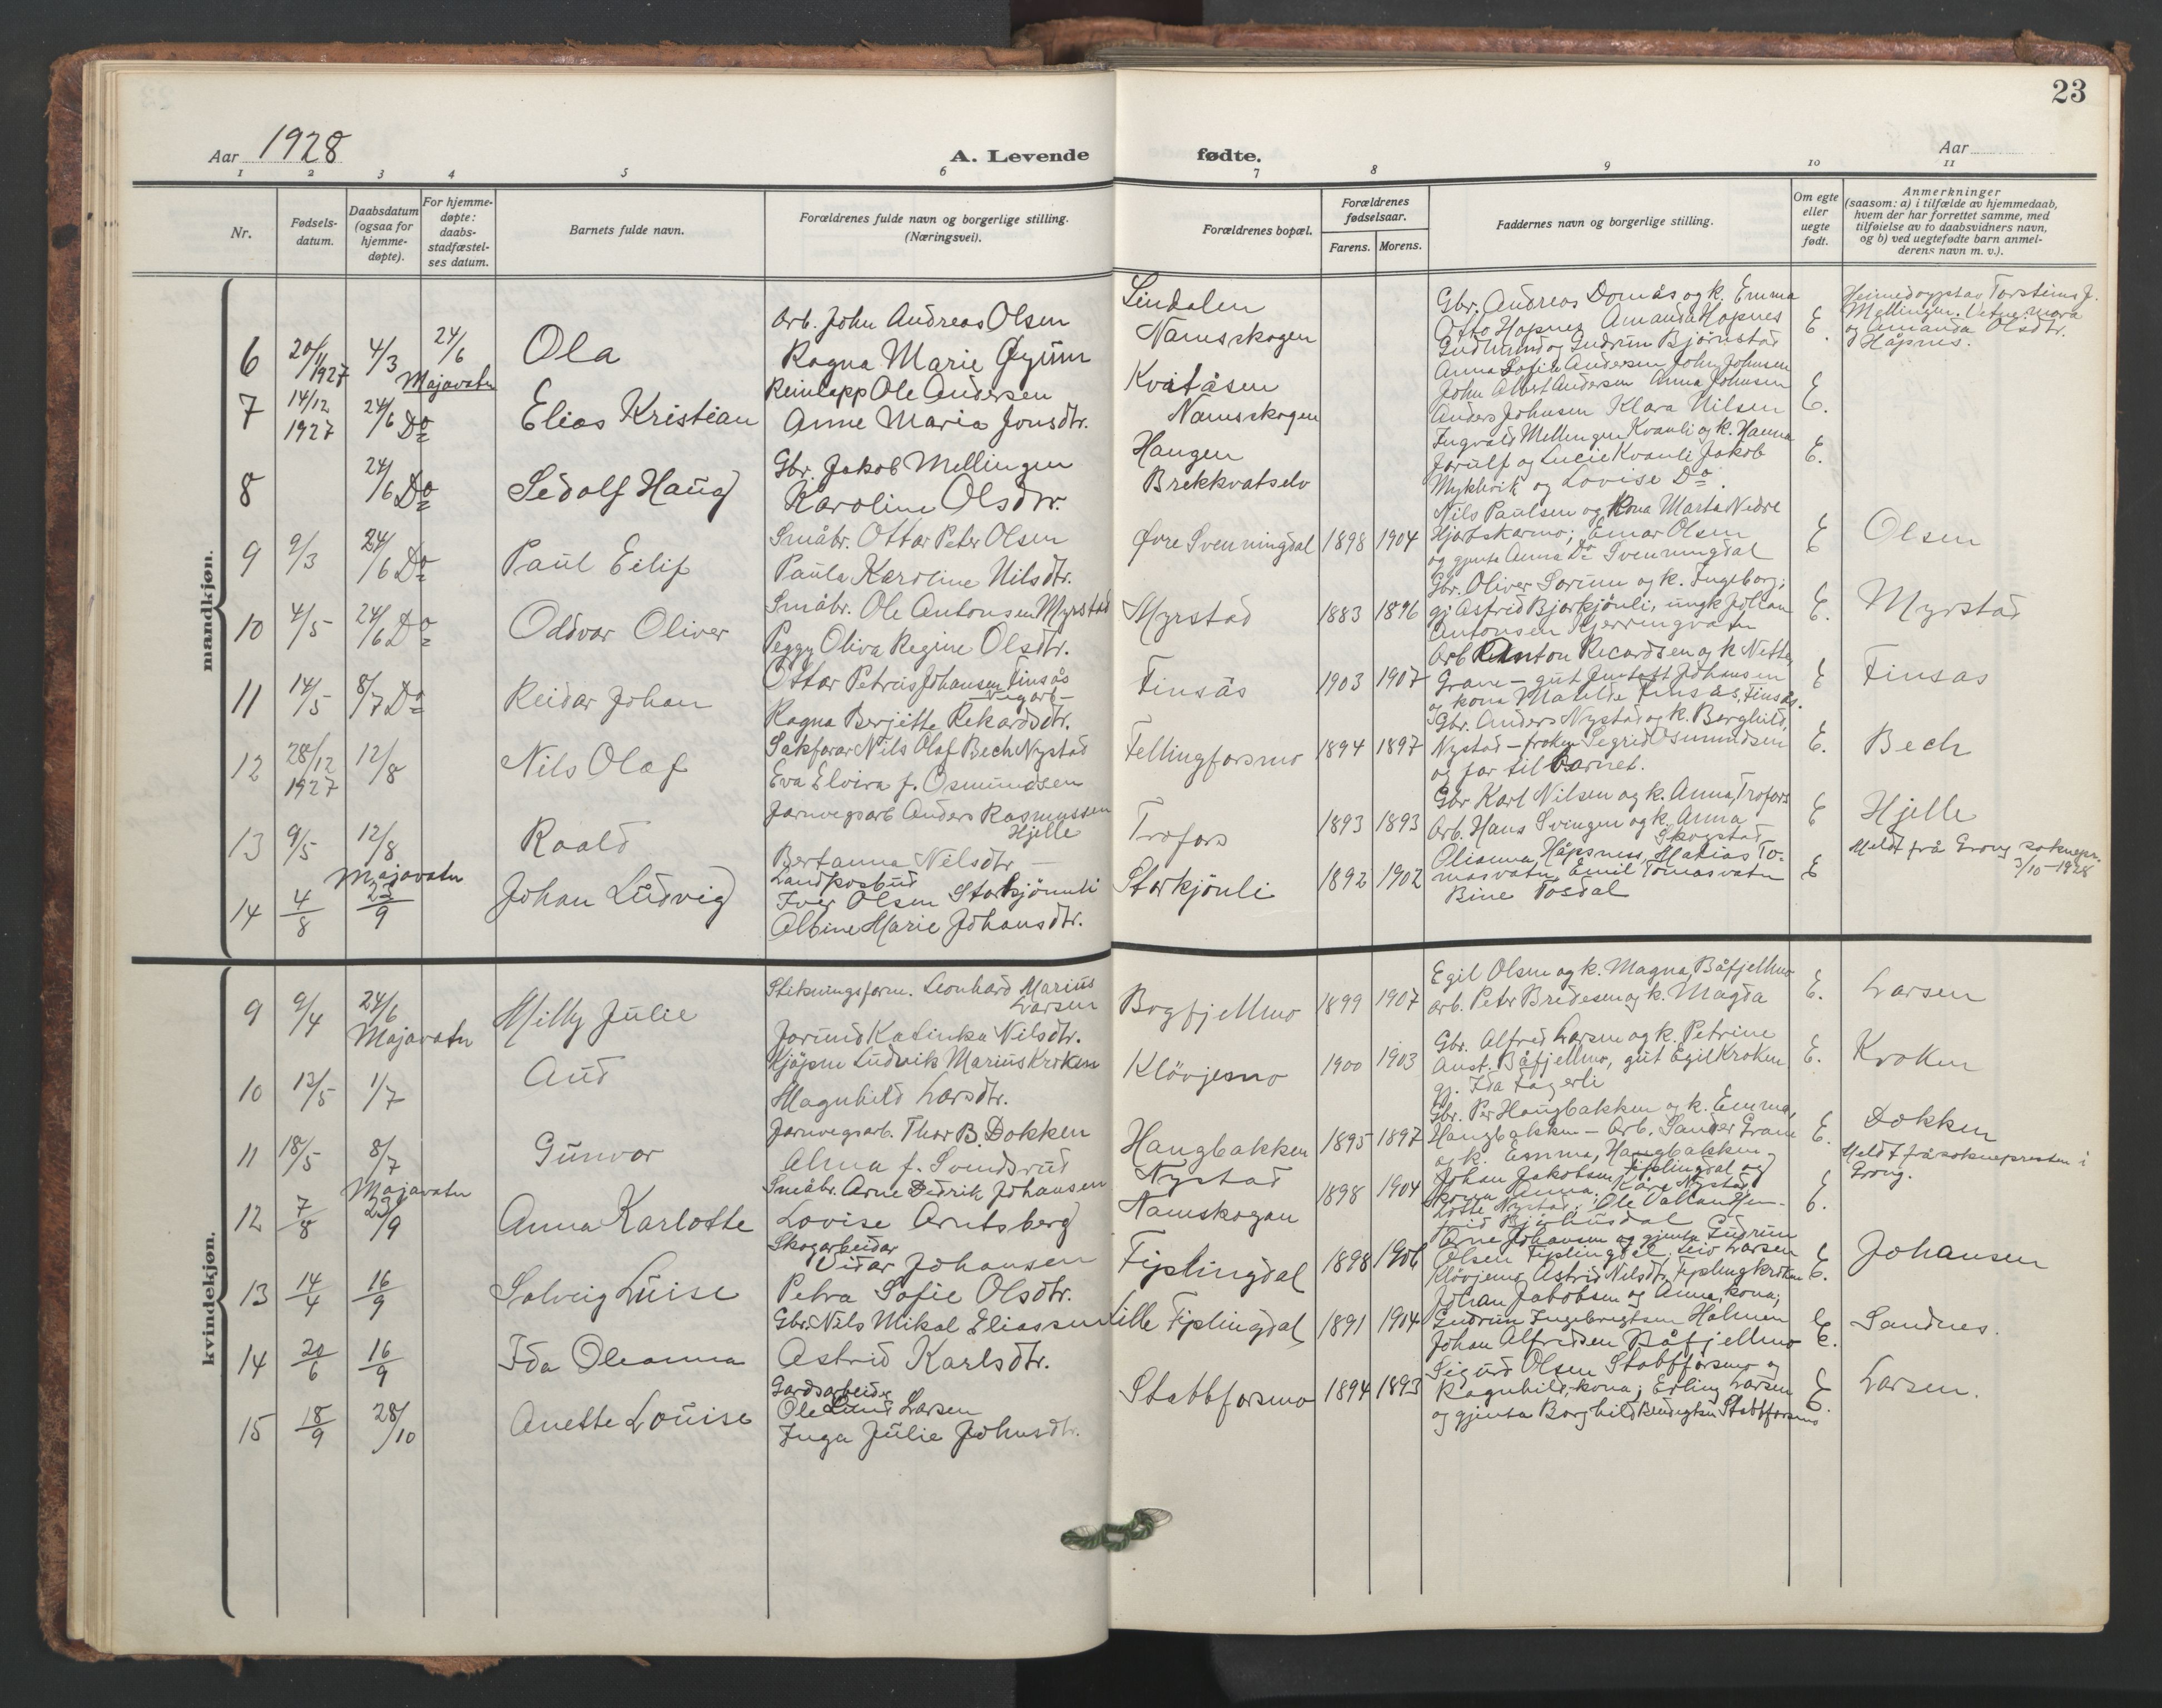 23
Aar 1928
A. Levende fødte.
Aar
1 2 3 4 5 6 7 8 9 10 11
Nr.
Fødsels-datum.
Daabsdatum (ogsaa for hjemme-døpte).
For hjemme-døpte: daabs-stadfæstel-ses datum.
Barnets fulde navn.
Forældrenes fulde navn og borgerlige stilling. (Næringsvei).
Forældrenes bopæl.
Forældrenes fødselsaar.
Farens. Morens.
Faddernes navn og borgerlige stilling.
Om egte eller uegte født.
Anmerkninger (saasom: a) i tilfælde av hjemmedaab, hvem der har forrettet samme, med tilføielse av to daabsvidners navn, og b) ved uegtefødte barn anmel-derens navn m. v.).
mandkjøn.
6 20/11 1927 4/3 24/6 Majavatn Ola
Arb. John Andreas Olsen
Ragna Marie Øyum
Lindalen
Namsskogen
Gbr. Andreas Domås og k. Emma
Otto Hapnes Amanda Hapnes
Gudmund og Gudrun Bjørnstad
E.
Mellingen.
og Amanda Olsdtr.
Håpnes.
7 14/12 1927 24/6 Do Elias Kristian
Reinlapp Ole Andersen
Anne Maria Jonsdtr.
Kvitåsen
Namsskogen
Anna Sofie Andersen John Johnsen
John Albert Andersen Anna Johnsen
Anders Johnsen Klara Nilsen
E.
8 24/6 Do Sedolf Haug
Gbr. Jakob Mellingen
Karoline Olsdtr.
Haugen
Brekkvatselv
Ingvald Mellingen Kvanli og k. Hanna
Jorulf og Lucie Kvanli Jakob
Myklevik og Lovise Do.
E.
9 9/3 24/6 Do Paul Eilif
Småbr. Ottar Peter Olsen
Paula Karoline Nilsdtr.
Øvre Svenningdal 1898 1904
Nils Paulsen og kona Marta Nedre
Hjortskarmo; Einar Olsen
og gjenta Anna Do Svenningdal
E Olsen
10 4/5 24/6 Do Oddvar Oliver
Småbr. Ole Antonsen Myrstad
Peggy Oliva Regine Olsdtr.
Myrstad 1883 1896
Gbr. Oliver Sorum og k. Ingeborg;
gj. Astrid Bjørkjönli, ungk Johan
Antonsen Kjerringvatn
E. Myrstad
11 14/5 8/7 Do Reidar Johan
Ottar Petrus Johansen Finsås
vegarb-
Ragna Berjitte Rekardsdtr.
Finsås 1903 1907
Arb Anton Recardsen og k Netty
Grane - gut Johansen
og kona Matilde Finsås, Finsås.
E Finsas
12 28/12 1927 12/8 Nils Olaf
Sakförar Nils Olaf Bech Nystad
Eva Elvira f. Osmundsen
Fellingforsmo 1894 1897
Gbr. Anders Nystad og k. Borghild,
Nystad - frøken Segrid Osmundsen
og far til barnet.
E. Bech
13 9/5 12/8 Roald
Jarnvegsarb Anders Rasmussen
Hjelle
Bertanna Nelsdtr -
Trofors 1893 1893
Gbr Karl Nilsen og k. Anna, Trofors
Arb. Hans Svingen og k. Anna
Skogstad
E Hjelle
14 4/8 Majavatn 23/9 Johan Ludvig
Landpostbud
Iver Olsen Storkjönnli
Albine Marie Johansdtr.
Storkjönli 1892 1902
Olianna Håpsnes, Matias To-
masvatn, Emil Tomasvatn
Bine Tosdal
E
Meldt frå Grong soknepr.
3/10-1928
kvindekjøn.
9 9/4 24/6 Majavatn Milly Julie
Stikningsform. Leonhard Marius
Larsen
Jorund Katinka Nilsdtr.
Bogfjellmo 1899 1907
Egil Olsen og k. Magna, Båfjellmo
arb. Petr Bredesen og k. Magda
E. Larsen
10 13/5 1/7 Aud
Kjöpm Ludvik Marius Kroken
Magnhild Larsdtr.
Klövjesmo 1900 1903
Gbr. Alfred Larsen og k. Petrine
Aust. Båfjellmo, gut Egil Kroken
gj. Ida Fagerli
E. Kroken
11 18/5 8/7 Gunvor
Jarnvegsarb. Thor B. Dokken
Alma f. Svendsrud
Haugbakken 1895 1897
Gbr. Per Haugbakken og k. Emma,
Haugbakken - Arb. Sander Grane
og k. Emma, Haugbakken
E. Dokken
12 7/8 Majavatn 23/9 Anna Karlotte
Småbr. Arne Dedrik Johansen
Lovise Arntsberg
Nystad
Namskogan 1898 1904
Johan Jakobsen Fiplingdal og
kona Anna; Kåre Nystad,
Lotte Nystad; Ole Valland
Bjørhusdal
E.
Meldt frå soknepresten i
Grong.
13 14/4 16/9 Solveig Luise
Skogarbeidar
Vidar Johansen
Petra Sofie Olsdtr.
Fiplingdal 1898 1906
Arne Johansen og gjenta Gudrun
Olsen Fiplingdal; Leiv Larsen
Klövjemo, Astrid Nilsdtr. Fiplingkroken
E. Johansen
14 20/6 16/9 Ida Oleanna
Gbr. Nils Mikal Eliassen
Astrid Karlsdtr.
Lille Fiplingdal 1891 1904
Johan Jakobsen og Anna, kona;
Gudrun Ingebrigtsen Holmen
Johan Alfredsen Båfjellmo
E. Sandnes.
15 18/9 28/10 Anette Louise
Gardsarbeider
Ole Lund Larsen
Inga Julie Johnsdtr.
Stabbforsmo 1894 1893
Sigurd Olsen Stabbforsmo og
Ragnhild, kona; Erling Larsen
og gjenta Borghild Bendigtsen Stabbforsmo
E. Larsen.